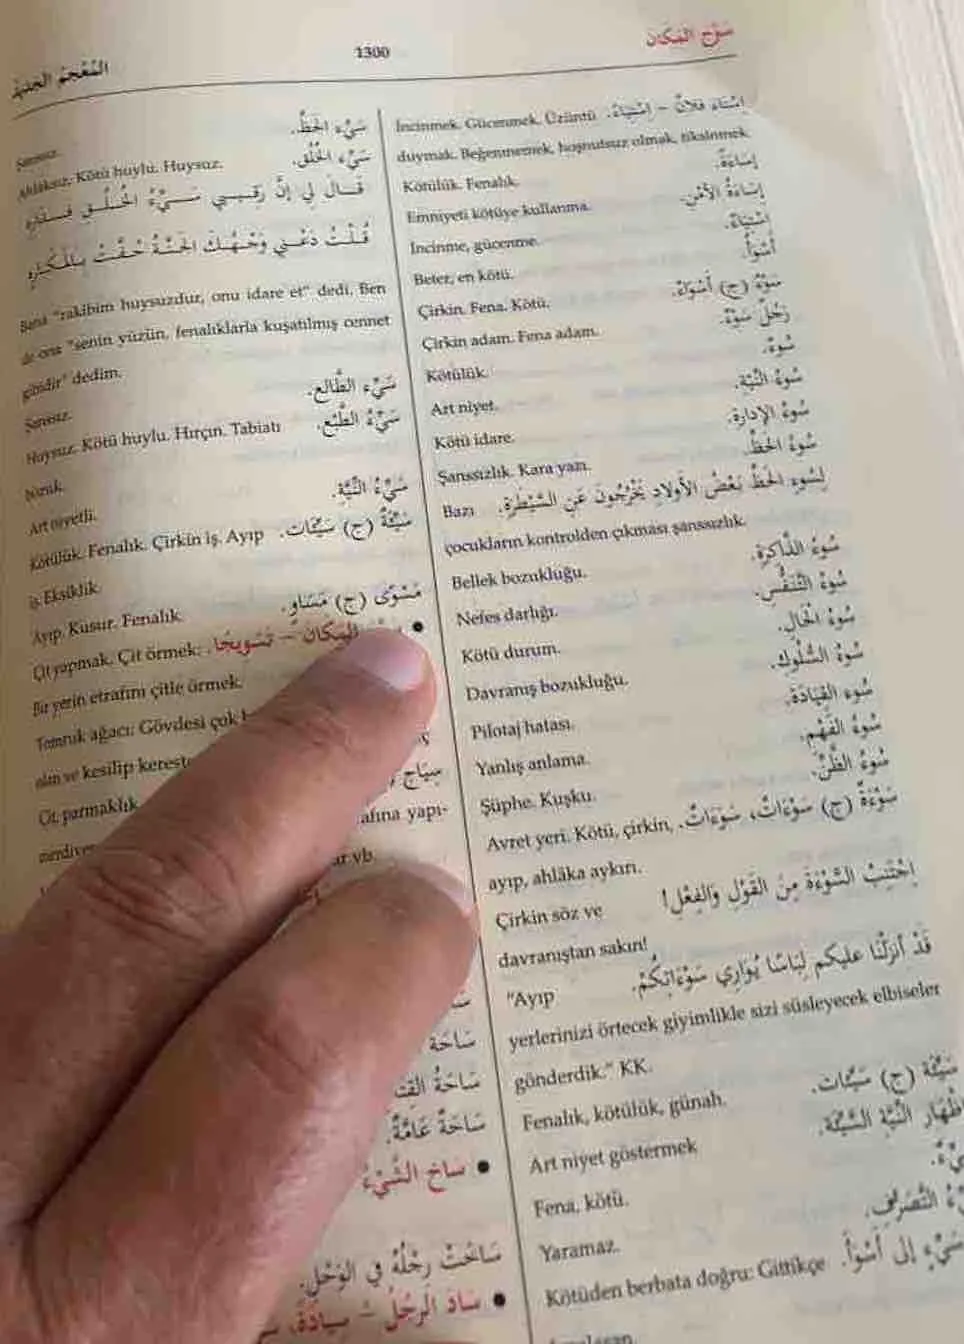 سَوَّجَ المَكَان
1300
المُعْجَمُ
اِسْتَاءَ فُلَانٌ – اِسْتِيَاءً. İncinmek. Gücenmek. Üzüntü
duymak. Beğenmemek, hoşnutsuz olmak, tiksinmek
إِسَاءَةٌ. Kötülük. Fenalık.
إِسَاءَةُ الأَمْنِ. Emniyeti kötüye kullanma.
اِسْتِيَاءٌ. İncinme, gücenme.
أَسْوَأُ. Beter, en kötü.
سَوْءٌ (ج) أَسْوَاءٌ. Çirkin. Fena. Kötü.
رَجُلُ سَوْءٍ. Çirkin adam. Fena adam.
سُوءٌ. Kötülük.
سُوءُ النِّيَّةِ. Art niyet.
سُوءُ الإدارةِ. Kötü idare.
سُوءُ الحَظِّ. Şanssızlık. Kara yazı.
لِسُوءِ الحَظِّ بَعْضُ الأولادِ يَخْرُجُونَ عَنِ السَّيْطَرةِ. Bazı
çocukların kontrolden çıkması şanssızlık.
سُوءُ الذَّاكِرةِ. Bellek bozukluğu.
سُوءُ التَّنَفُّسِ. Nefes darlığı.
سُوءُ الحَالِ. Kötü durum.
سُوءُ السُّلُوكِ. Davranış bozukluğu.
سُوء القِيَادَةِ. Pilotaj hatası.
سُوءُ الفَهْمِ. Yanlış anlama.
سُوءُ الظَّنِّ. Şüphe. Kuşku.
سَوْءَةٌ (ج) سَوْءَاتٌ، سَوَءَاتٌ. Avret yeri. Kötü, çirkin,
ayıp, ahlâka aykırı.
اِجْتَنِبْ السَّوْءَةَ مِنَ القَوْلِ وَالفِعْلِ! Çirkin söz ve
davranıştan sakın!
قَدْ أَنزَلْنَا عليكم لِبَاسًا يُوَارِي سَوْءَاتِكُمْ. "Ayıp
yerlerinizi örtecek giyimlikle sizi süsleyecek elbiseler
gönderdik." KK.
سَيِّئَة (ج) سَيِّئات. Fenalık, kötülük, günah.
إظْهَار النِّيَّةِ السَّيِّئَةِ. Art niyet göstermek
Fena, kötü.
التَّصَرُّفِ. Yaramaz.
سَيِّءٍ إلى أَسْوَأَ. Kötüden berbata doğru: Gittikçe
سَيِّء الحَظِّ. Şanssız.
سَيِّء الخُلُقِ. Ahlâksız. Kötü huylu. Huysuz.
قَالَ لِي إِنَّ رَقِيبِي سَيِّءُ الخُلُقِ فَدَارِهِ
قُلْتُ دَعْنِي وَجْهُكَ الجَنَّةُ حُفَّتْ بِالمَكَارِهِ
Bana "rakibim huysuzdur, onu idare et" dedi. Ben
de ona "senin yüzün, fenalıklarla kuşatılmış cennet
gibidir" dedim.
سَيِّء الطَّالعِ. Şanssız.
سَيِّءُ الطَّبْعِ. Huysuz. Kötü huylu. Hırçın. Tabiatı
bozuk.
سَيِّءُ النِّيَّةِ. Art niyetli.
سَيِّئَةٌ (ج) سَيِّئَات. Kötülük. Fenalık. Çirkin iş. Ayıp
iş. Eksiklik.
مَسْوَى (ج) مَسَاوٍ. Ayıp. Kusur. Fenalık.
● المَكَانَ – تَسْوِيجًا. Çit yapmak. Çit örmek:
Bir yerin etrafını çitle örmek.
Tomruk ağacı: Gövdesi çok
alın ve kesilip kereste
سِيَاج Çit, parmaklık
afına yapı-
ar vb.
سَاحَة
سَاحَةُ
سَاحَةٌ عَامَّةٌ.
● سَاخَ الشَّيْءُ
سَاخَتْ رِجْلُهُ فِي الوَحْلِ.
● سَادَ الرَّجُلُ – سِيَادَةً،